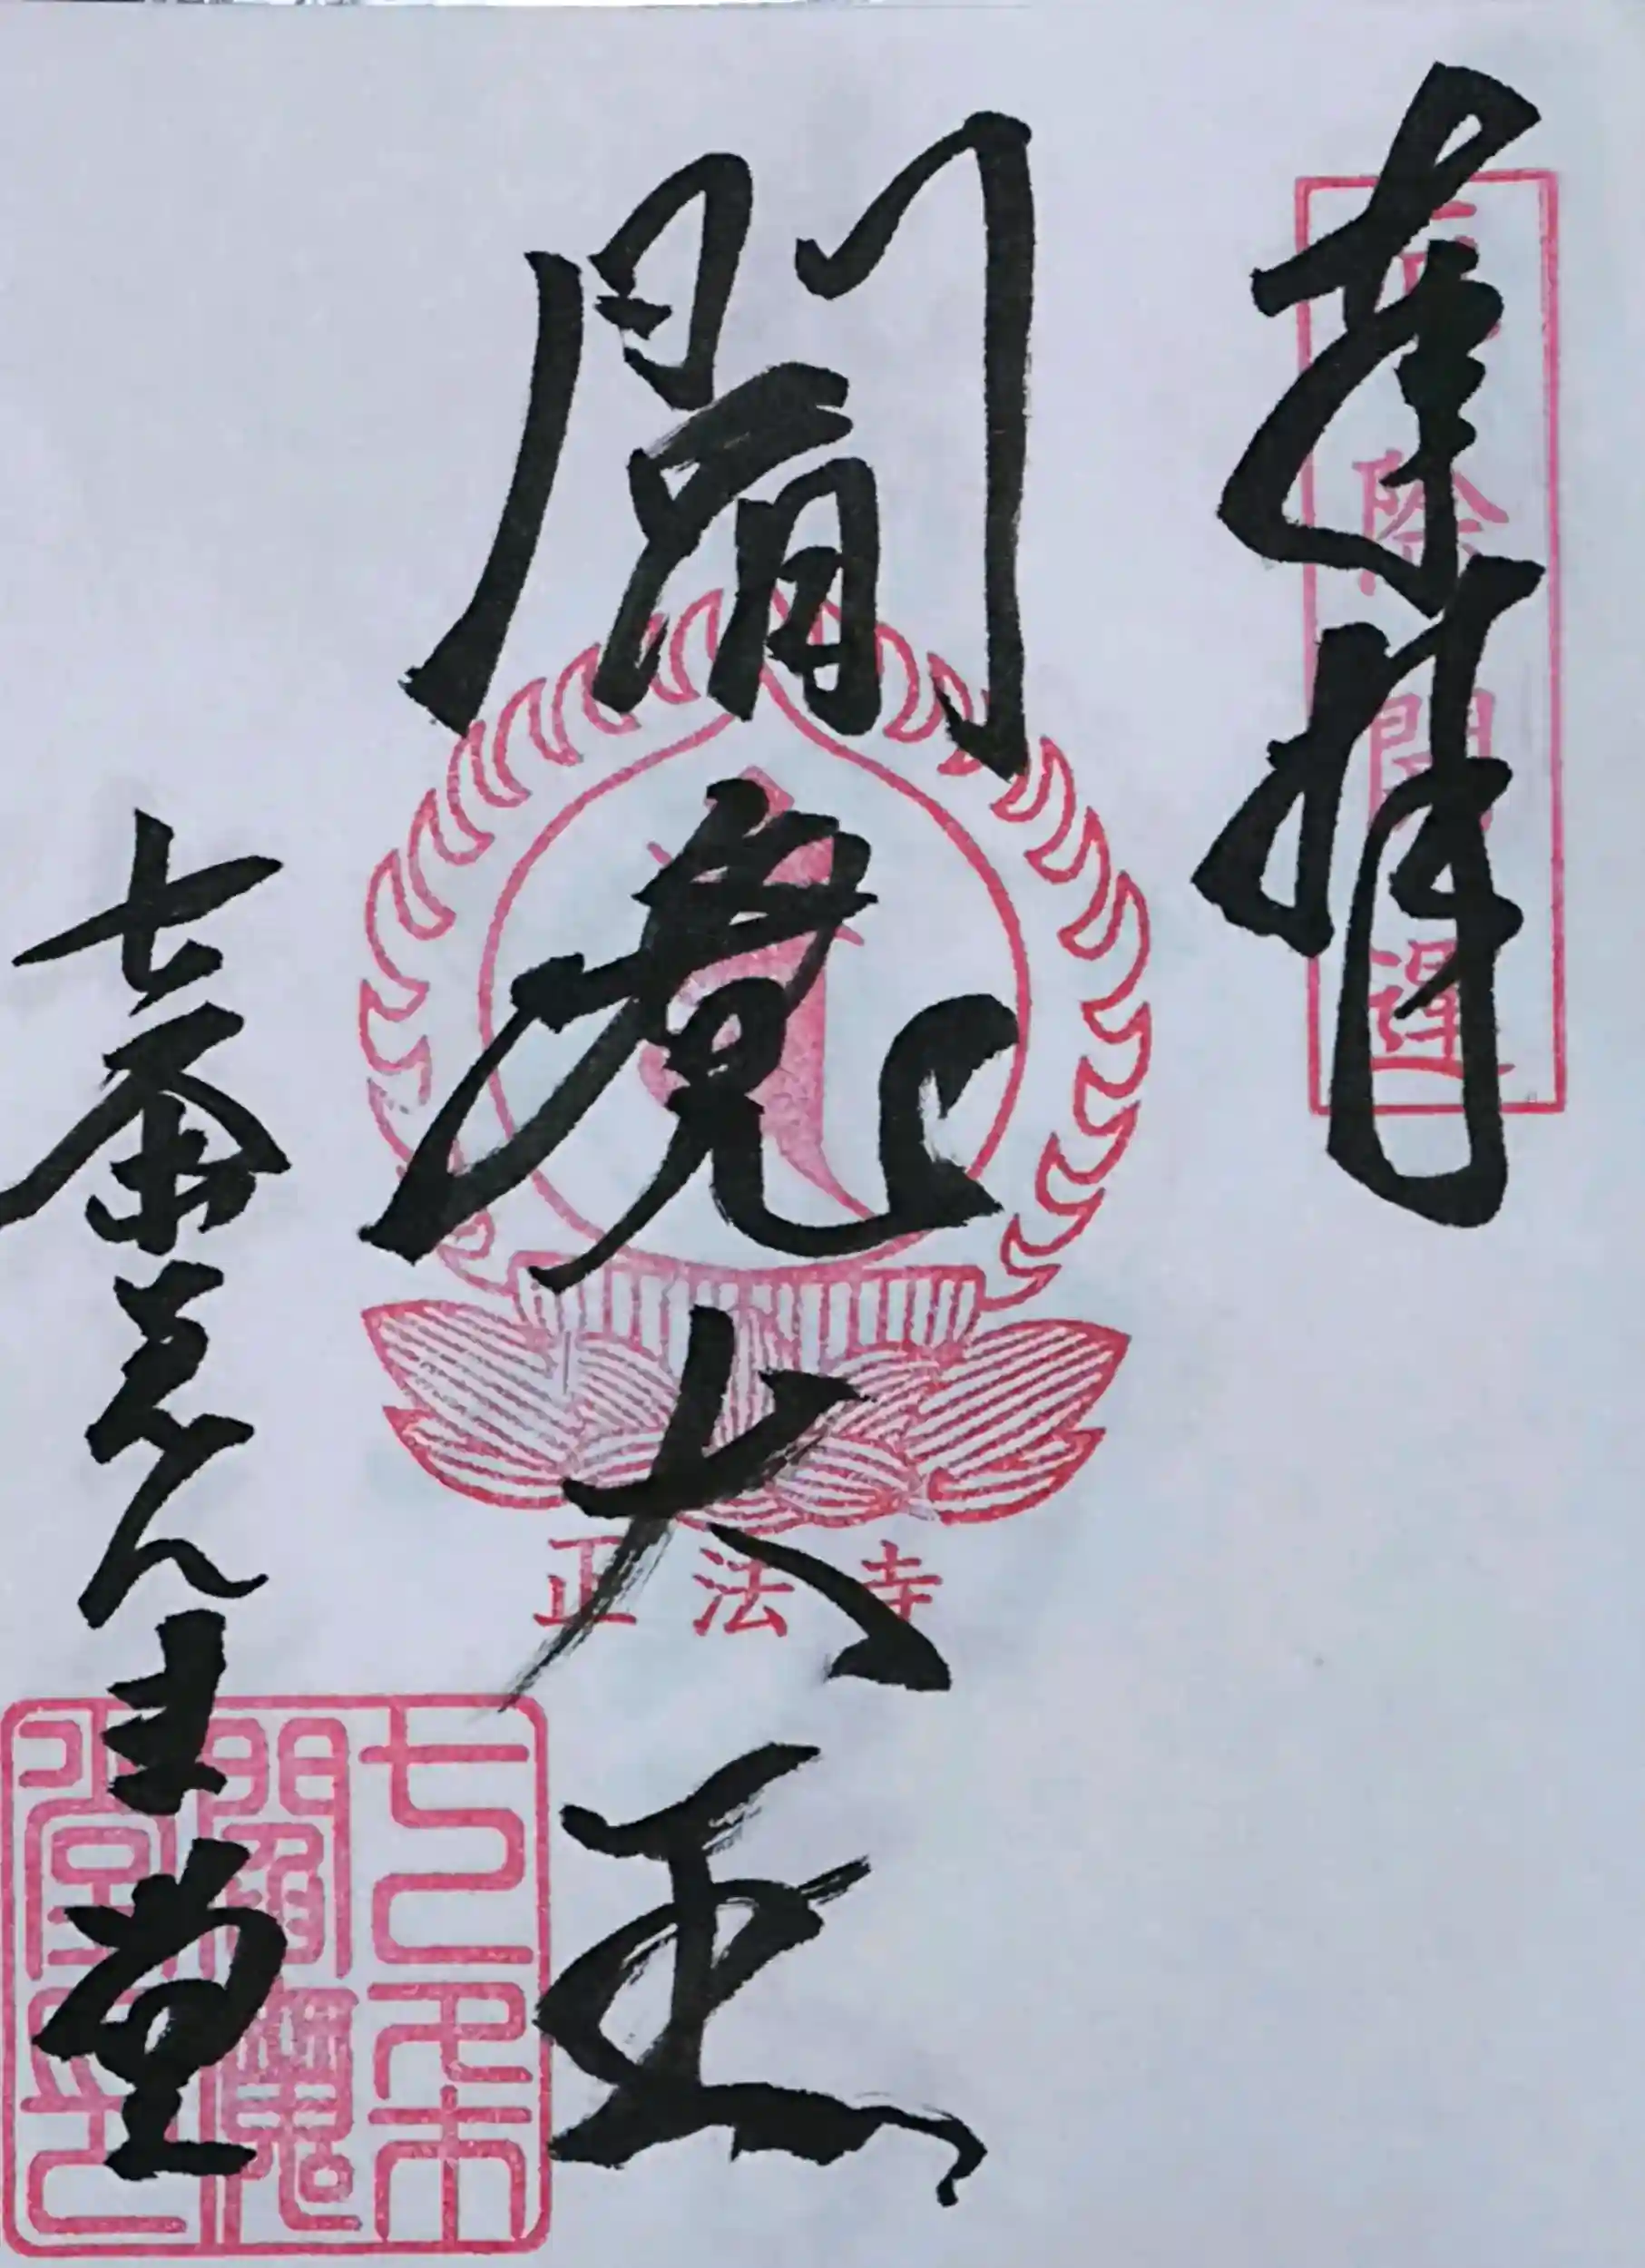 奉拝
厄除開運
閻魔大王
正法寺
七条えんま堂
七条
閻魔
堂印